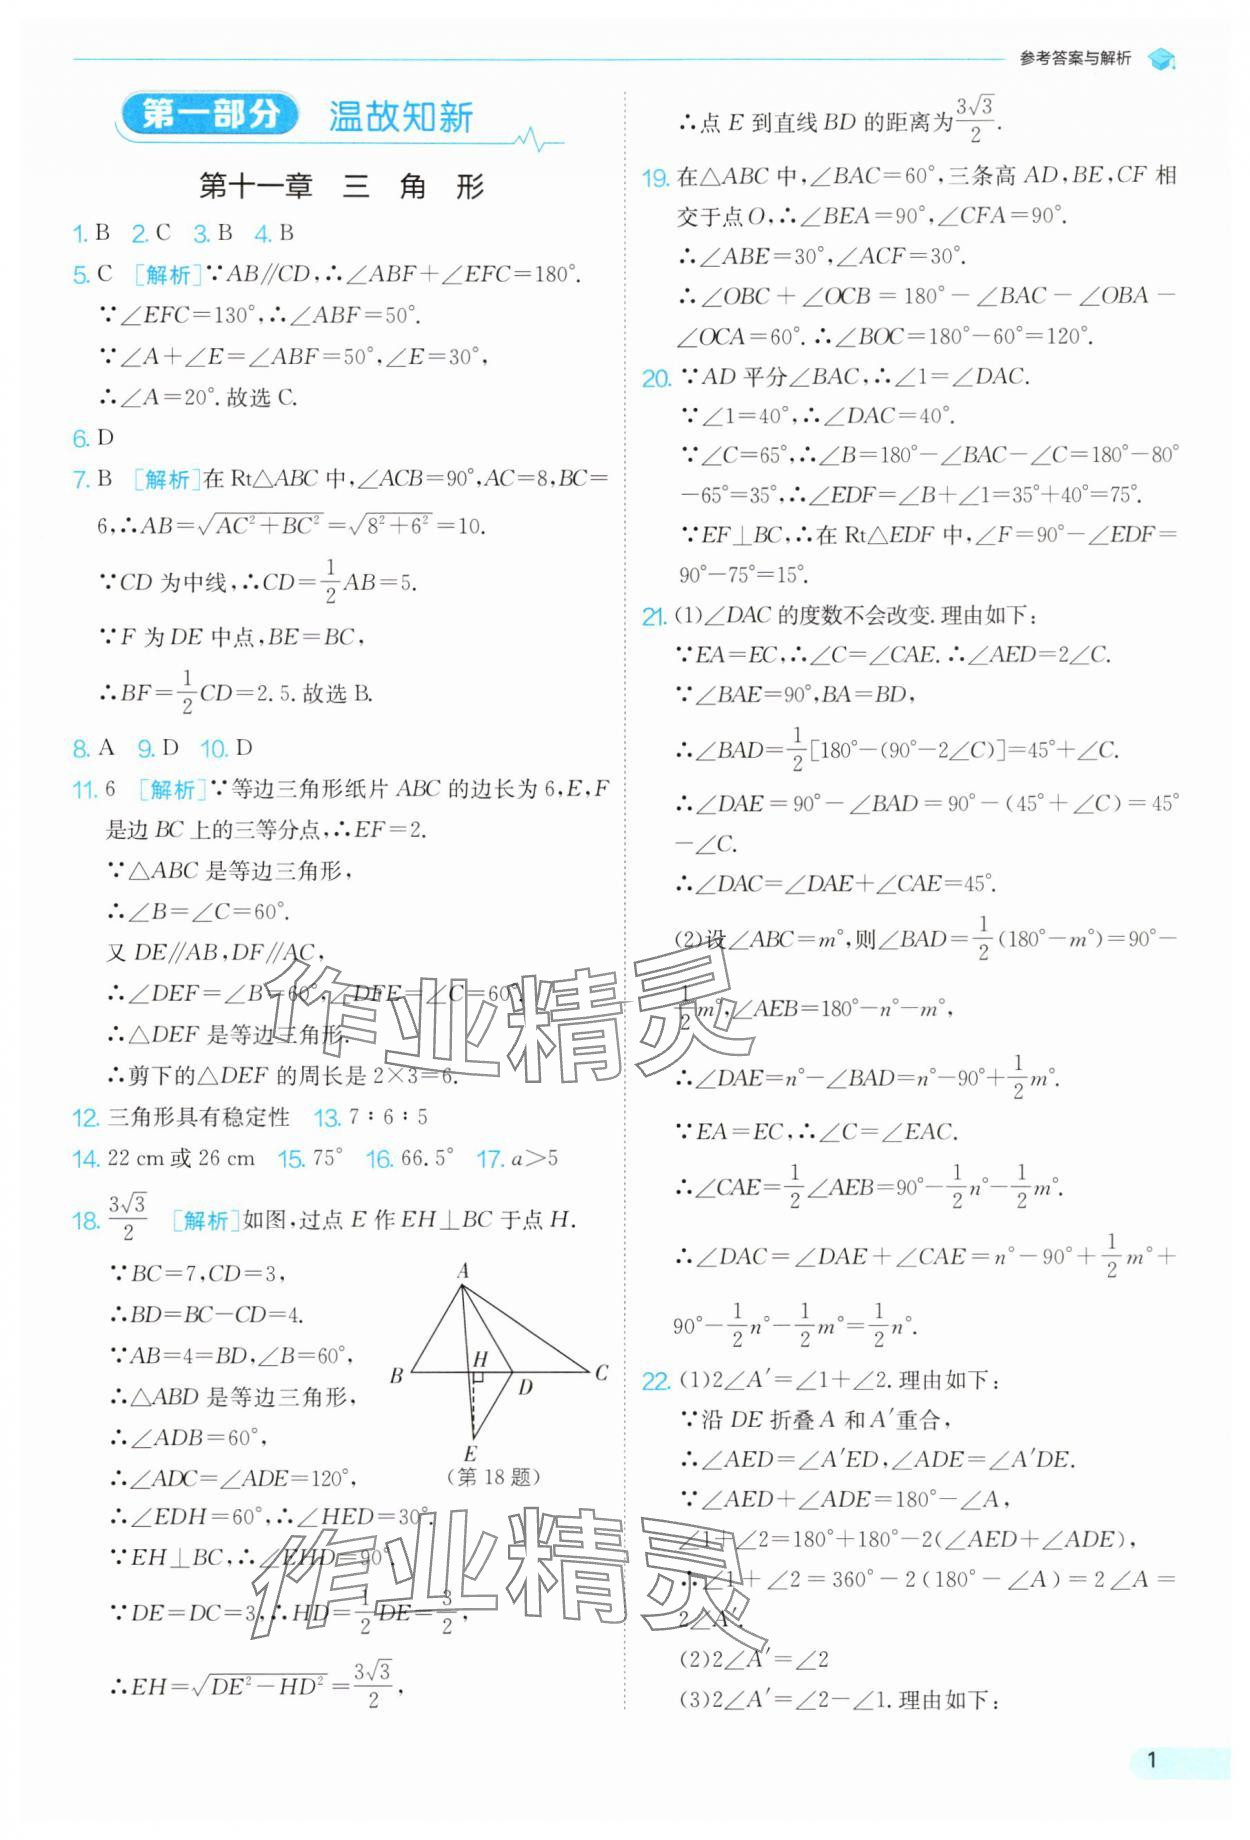 参考答案与解析
第一部分 温故知新
第十一章 三 角 形
1. B 2. C 3. B 4. B
5. C [解析]∵AB∥CD,∴∠ABF+∠EFC=180°.
∵∠EFC=130°,∴∠ABF=50°.
∵∠A+∠E=∠ABF=50°,∠E=30°,
∴∠A=20°.故选 C.
6. D
7. B [解析]在 Rt△ABC 中,∠ACB=90°,AC=8,BC=
6,∴AB=√(AC²+BC²)=√(8²+6²)=10.
∵CD 为中线,∴CD=1/2AB=5.
∵F 为 DE 中点,BE=BC,
∴BF=1/2CD=2.5.故选 B.
8. A 9. D 10. D
11. 6 [解析]∵等边三角形纸片 ABC 的边长为 6,E,F
是边 BC 上的三等分点,∴EF=2.
∵△ABC 是等边三角形,
∴∠B=∠C=60°.
又 DE∥AB,DF∥AC,
∴∠DEF=∠B=60°,∠DFE=∠C=60°.
∴△DEF 是等边三角形.
∴剪下的△DEF 的周长是 2×3=6.
12. 三角形具有稳定性 13. 7∶6∶5
14. 22 cm 或 26 cm 15. 75° 16. 66.5° 17. a>5
18. 3√3/2 [解析]如图,过点 E 作 EH⊥BC 于点 H.
∵BC=7,CD=3,
∴BD=BC-CD=4.
∵AB=4=BD,∠B=60°,
∴△ABD 是等边三角形,
∴∠ADB=60°,
∴∠ADC=∠ADE=120°,
∴∠EDH=60°,∴∠HED=30°.
∵EH⊥BC,∴∠EHD=90°.
∵DE=DC=3,∴HD=1/2DE=3/2,
∴EH=√(DE²-HD²)=3√3/2,
A
B
H
D
C
E
(第 18 题)
∴点 E 到直线 BD 的距离为3√3/2.
19. 在△ABC 中,∠BAC=60°,三条高 AD,BE,CF 相
交于点 O,∴∠BEA=90°,∠CFA=90°.
∴∠ABE=30°,∠ACF=30°.
∴∠OBC+∠OCB=180°-∠BAC-∠OBA-
∠OCA=60°.∴∠BOC=180°-60°=120°.
20. ∵AD 平分∠BAC,∴∠1=∠DAC.
∵∠1=40°,∴∠DAC=40°.
∵∠C=65°,∴∠B=180°-∠BAC-∠C=180°-80°
-65°=35°,∴∠EDF=∠B+∠1=35°+40°=75°.
∵EF⊥BC,∴在 Rt△EDF 中,∠F=90°-∠EDF=
90°-75°=15°.
21. (1)∠DAC 的度数不会改变.理由如下:
∵EA=EC,∴∠C=∠CAE.∴∠AED=2∠C.
∵∠BAE=90°,BA=BD,
∴∠BAD=1/2[180°-(90°-2∠C)]=45°+∠C.
∴∠DAE=90°-∠BAD=90°-(45°+∠C)=45°
-∠C.
∴∠DAC=∠DAE+∠CAE=45°.
(2)设∠ABC=m°,则∠BAD=1/2(180°-m°)=90°-
1/2m°,∠AEB=180°-n°-m°,
∴∠DAE=n°-∠BAD=n°-90°+1/2m°.
∵EA=EC,∴∠C=∠EAC.
∴∠CAE=1/2∠AEB=90°-1/2n°-1/2m°.
∴∠DAC=∠DAE+∠CAE=n°-90°+1/2m°+
90°-1/2n°-1/2m°=1/2n°.
22. (1)2∠A′=∠1+∠2.理由如下:
∵沿 DE 折叠 A 和 A′重合,
∴∠AED=∠A′ED,∠ADE=∠A′DE.
∵∠AED+∠ADE=180°-∠A,
∠1+∠2=180°+180°-2(∠AED+∠ADE),
∴∠1+∠2=360°-2(180°-∠A)=2∠A=
2∠A′.
(2)2∠A′=∠2
(3)2∠A′=∠2-∠1.理由如下:
作业精灵
作业精灵
1